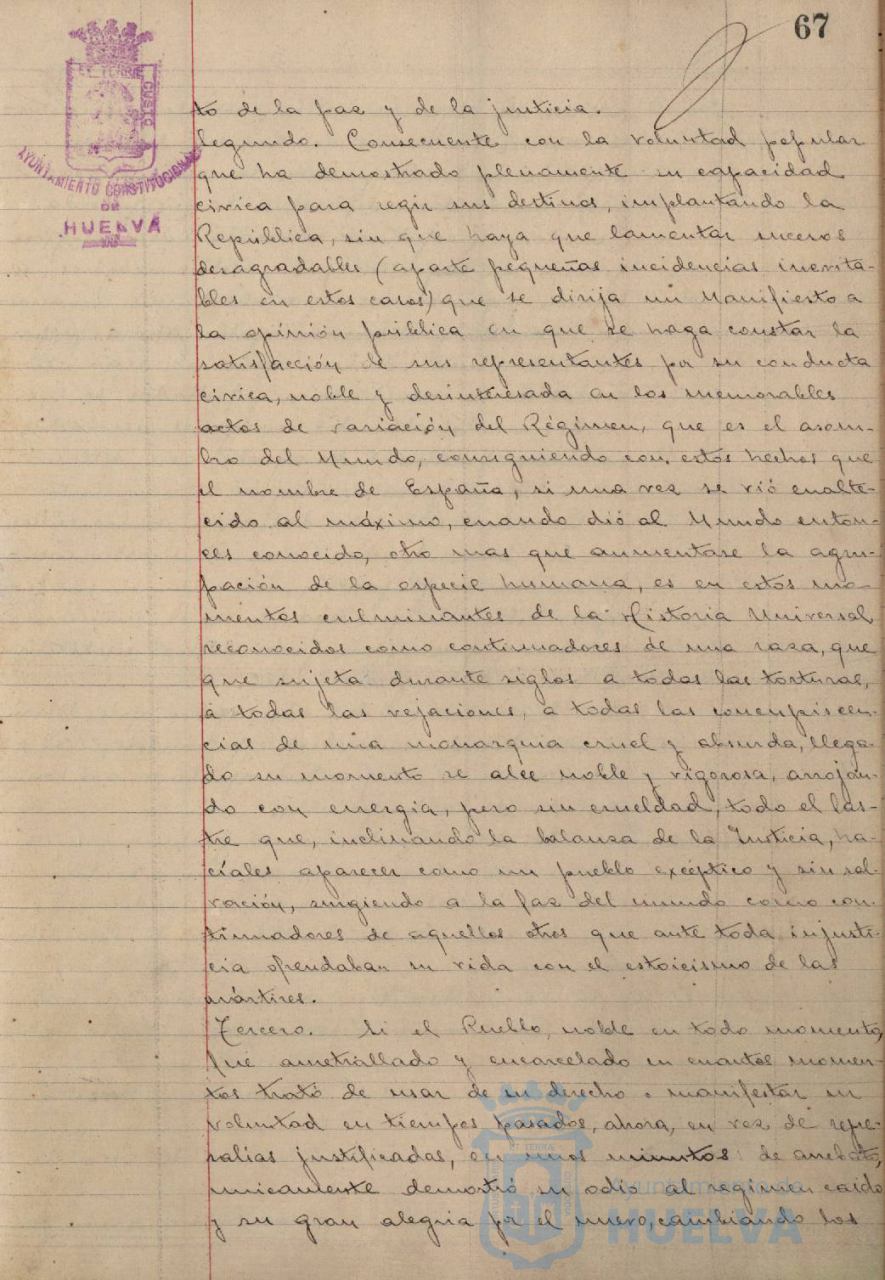 67
ET TERRE
CUSTO
AYUNTAMIENTO CONSTITUCIONAL
DE
HUELVA
to de la paz y de la justicia.
Segundo. Consecuente con la voluntad popular
que ha demostrado plenamente su capacidad
cívica para regir sus destinos, implantando la
República, sin que haya que lamentar sucesos
desagradables (aparte pequeñas incidencias inevita-
bles en estos casos) que se dirija un Manifiesto a
la opinión pública en que se haga constar la
satisfacción de sus representantes por su conducta
cívica, noble y desinteresada en los memorables
actos de variación del Régimen, que es el asom-
bro del Mundo, consiguiendo con estos hechos que
el nombre de España, si una vez se vió enalte-
cido al máximo, cuando dió al Mundo enton-
ces conocido, otro mas que aumentase la agru-
pación de la especie humana, es en estos mo-
mentos culminantes de la Historia Universal,
reconocidos como continuadores de una raza, que
que sujeta durante siglos a todas las torturas,
a todas las vejaciones, a todas las concupiscen-
cias de una monarquia cruel y absurda, llega-
do su momento se alce noble y vigorosa, arroján-
do con energia, pero sin crueldad, todo el las-
tre que, inclinando la balanza de la Justicia, ha-
cíales aparecer como un pueblo excéptico y sin sal-
vación, surgiendo a la faz del mundo como con-
tinuadores de aquellos otros que ante toda injusti-
cia ofrendaban su vida con el estoicismo de las
mártires.
Tercero. Si el Pueblo, noble en todo momento,
fue ametrallado y encarcelado en cuantos momen-
tos trató de usar de su derecho o manifestar su
voluntad en tiempos pasados, ahora, en vez de repre-
salias justificadas, en unos minutos de arrebato,
unicamente demostró su odio al regimen caido
y su gran alegria por el nuevo, cambiando los
ET TERRE
Ayuntamiento de
HUELVA